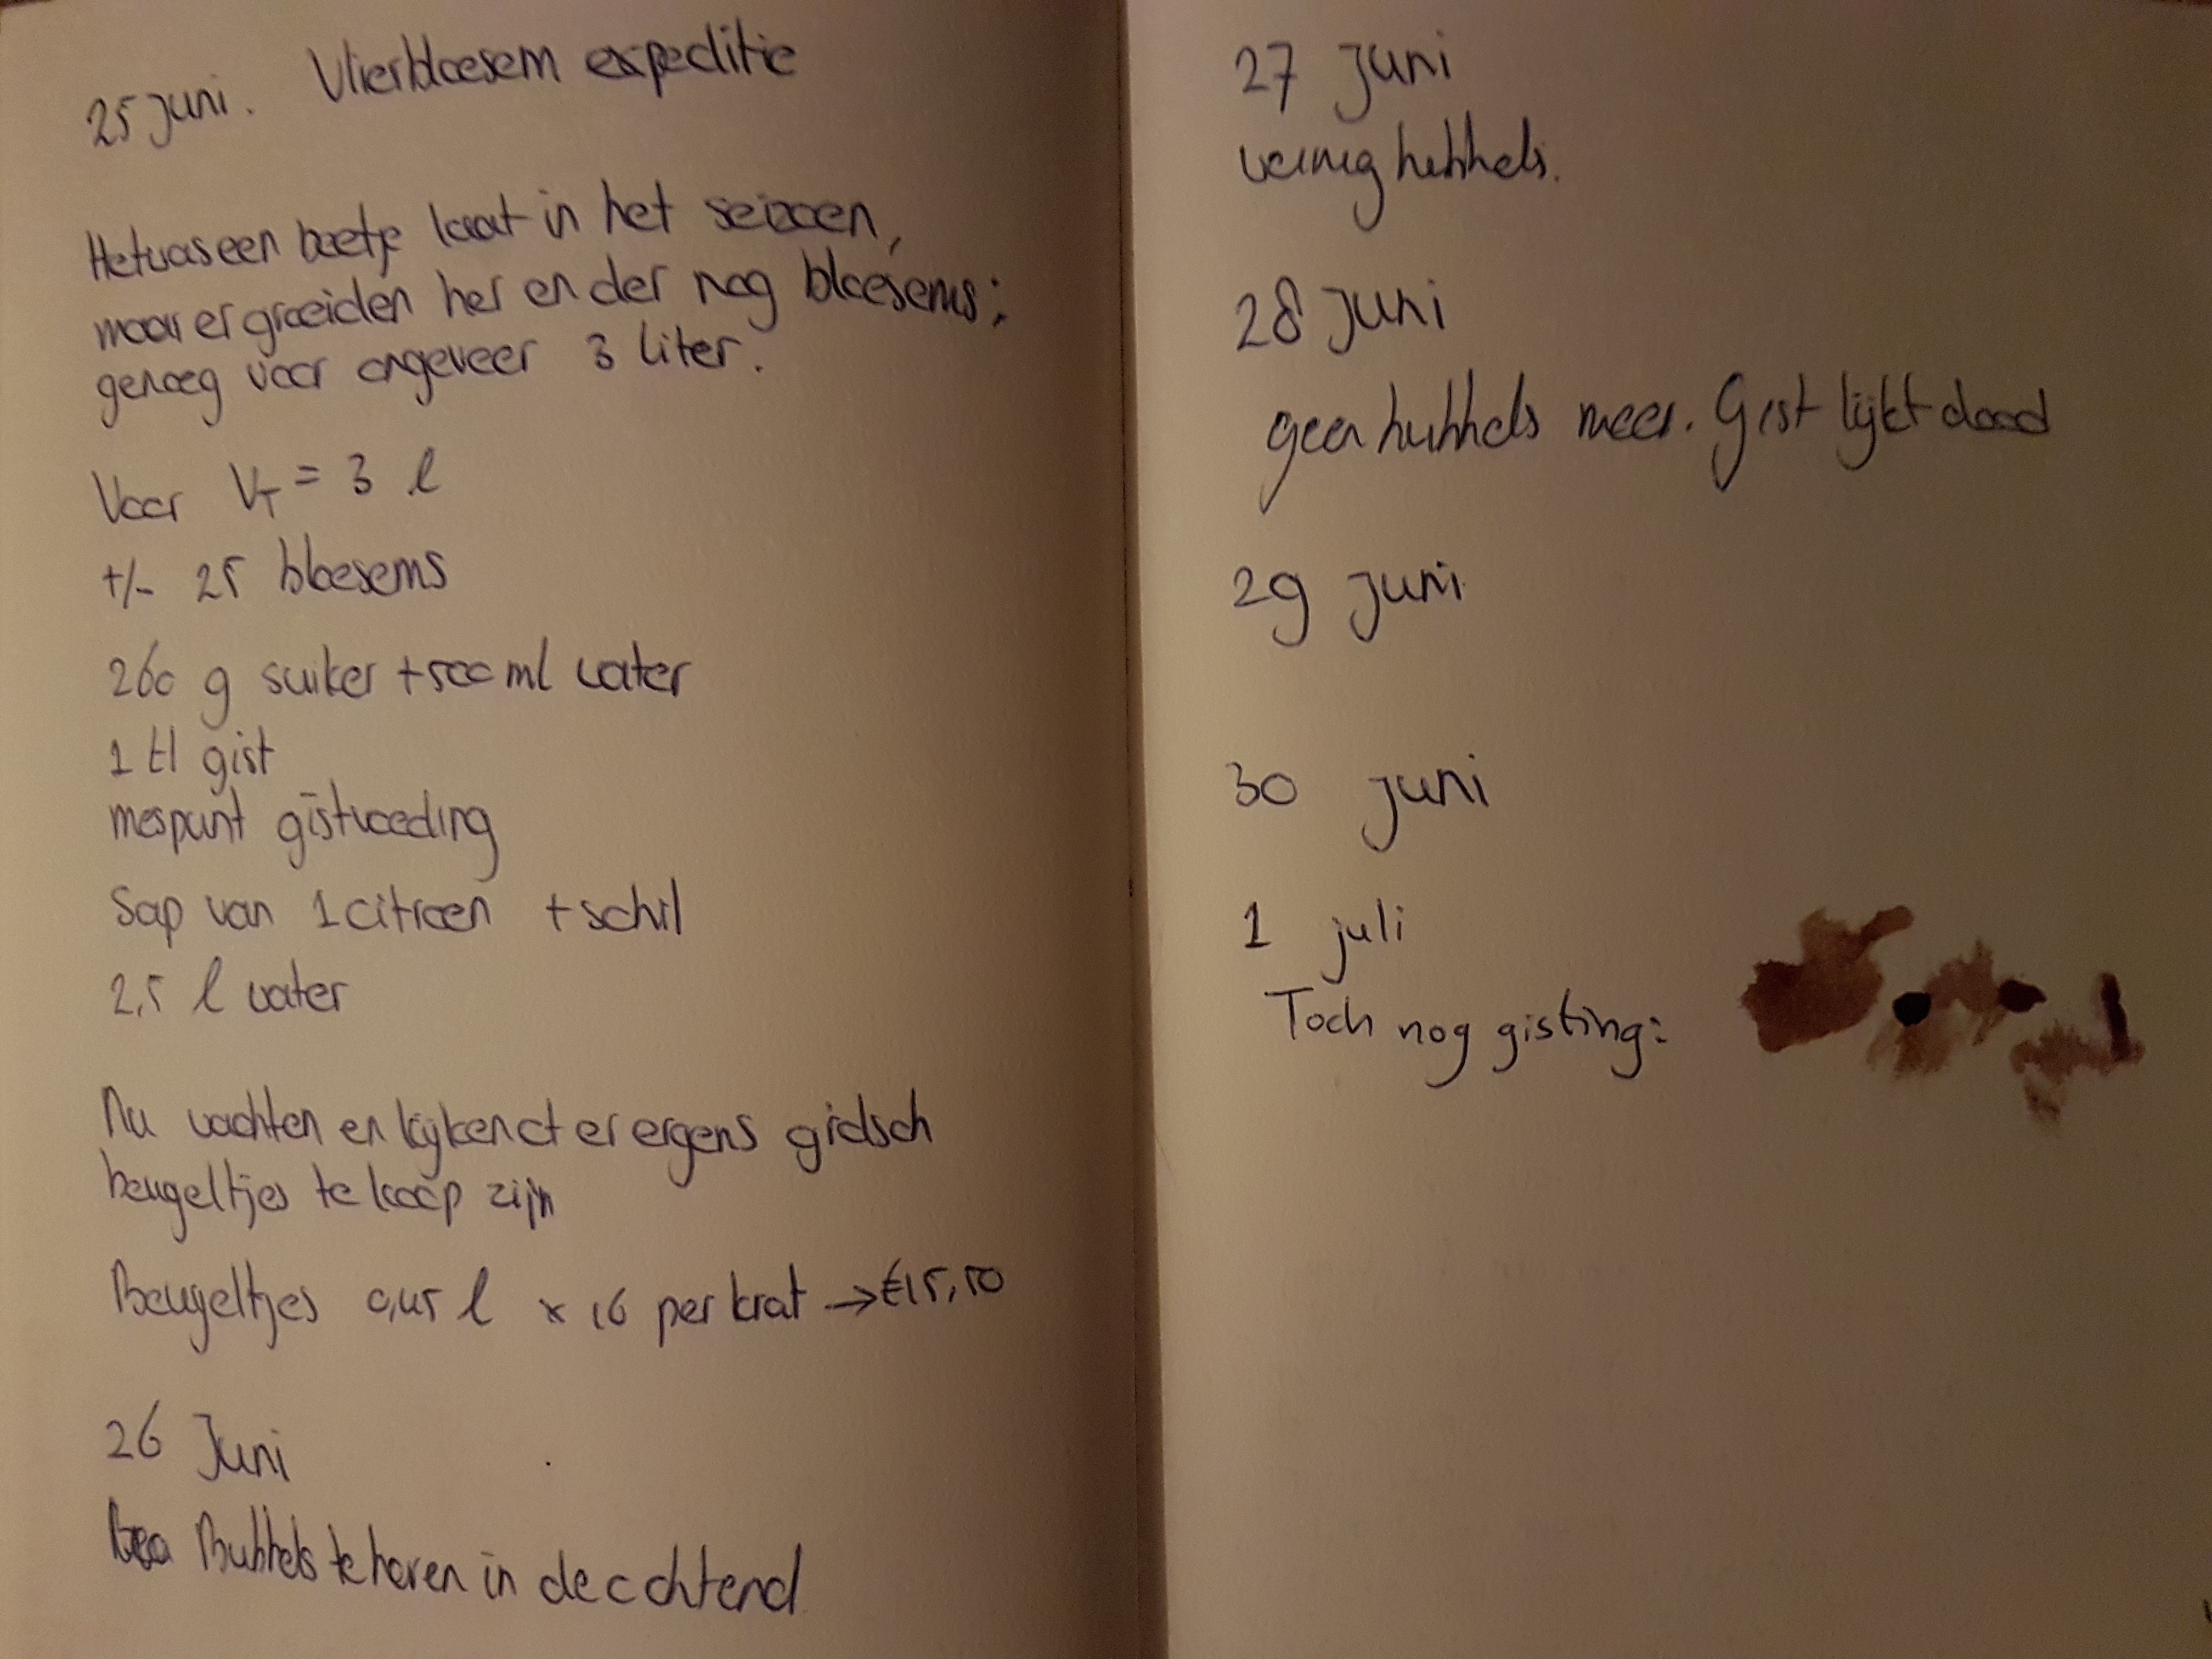 25 juni. Vlierbloesem expeditie
Het was een beetje laat in het seizoen,
maar er groeiden her en der nog bloesems;
genoeg voor ongeveer 3 liter.
Voor VT = 3 l
+/- 25 bloesems
260 g suiker + 500 ml water
1 tl gist
mespunt gistvoeding
Sap van 1 citroen + schil
2,5 l water
Nu wachten en kijken of er ergens
beugeltjes te koop zijn
Beugeltjes 0,45 l x 16 per krat → €15,50
26 Juni
Bubbels te horen in de ochtend
27 Juni
weinig bubbels.
28 Juni
geen bubbels meer. Gist lijkt dood
29 Juni
30 juni
1 juli
Toch nog gisting: